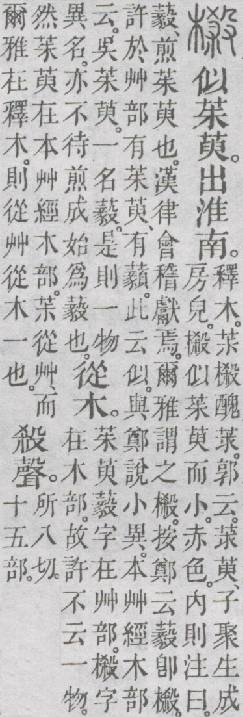 樧似茱萸。出淮南。
釋木。茱樧醜莍。郭云。莍萸、子聚生成
房皃。樧似茱萸而小。赤色。內則注曰。
藙、煎茱萸也。漢律會稽獻焉。爾雅謂之樧。按鄭云藙卽樧。
許於艸部有茱萸、有藙。此云似。與鄭說小異。本艸經木部
云。吳茱萸。一名藙。是則一物
異名。亦不待煎成始爲藙也。
從木。
茱萸藙字在艸部。樧字
在木部。故許不云一物。
然茱萸在本艸經木部。茱從艸、而
爾雅在釋木。則從艸從木一也。
殺聲。
所八切。
十五部。